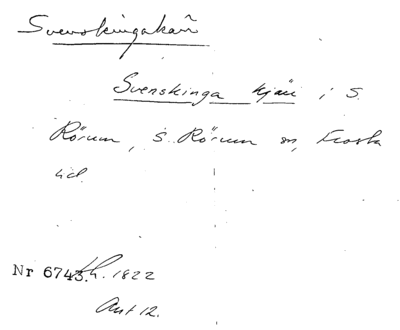 Svenskingakärr
Svenskinga kjärr i S.
Rörum, S. Rörum sn, Frosta
hd.
Nr 6743. Lh. 1822
Akt 12.